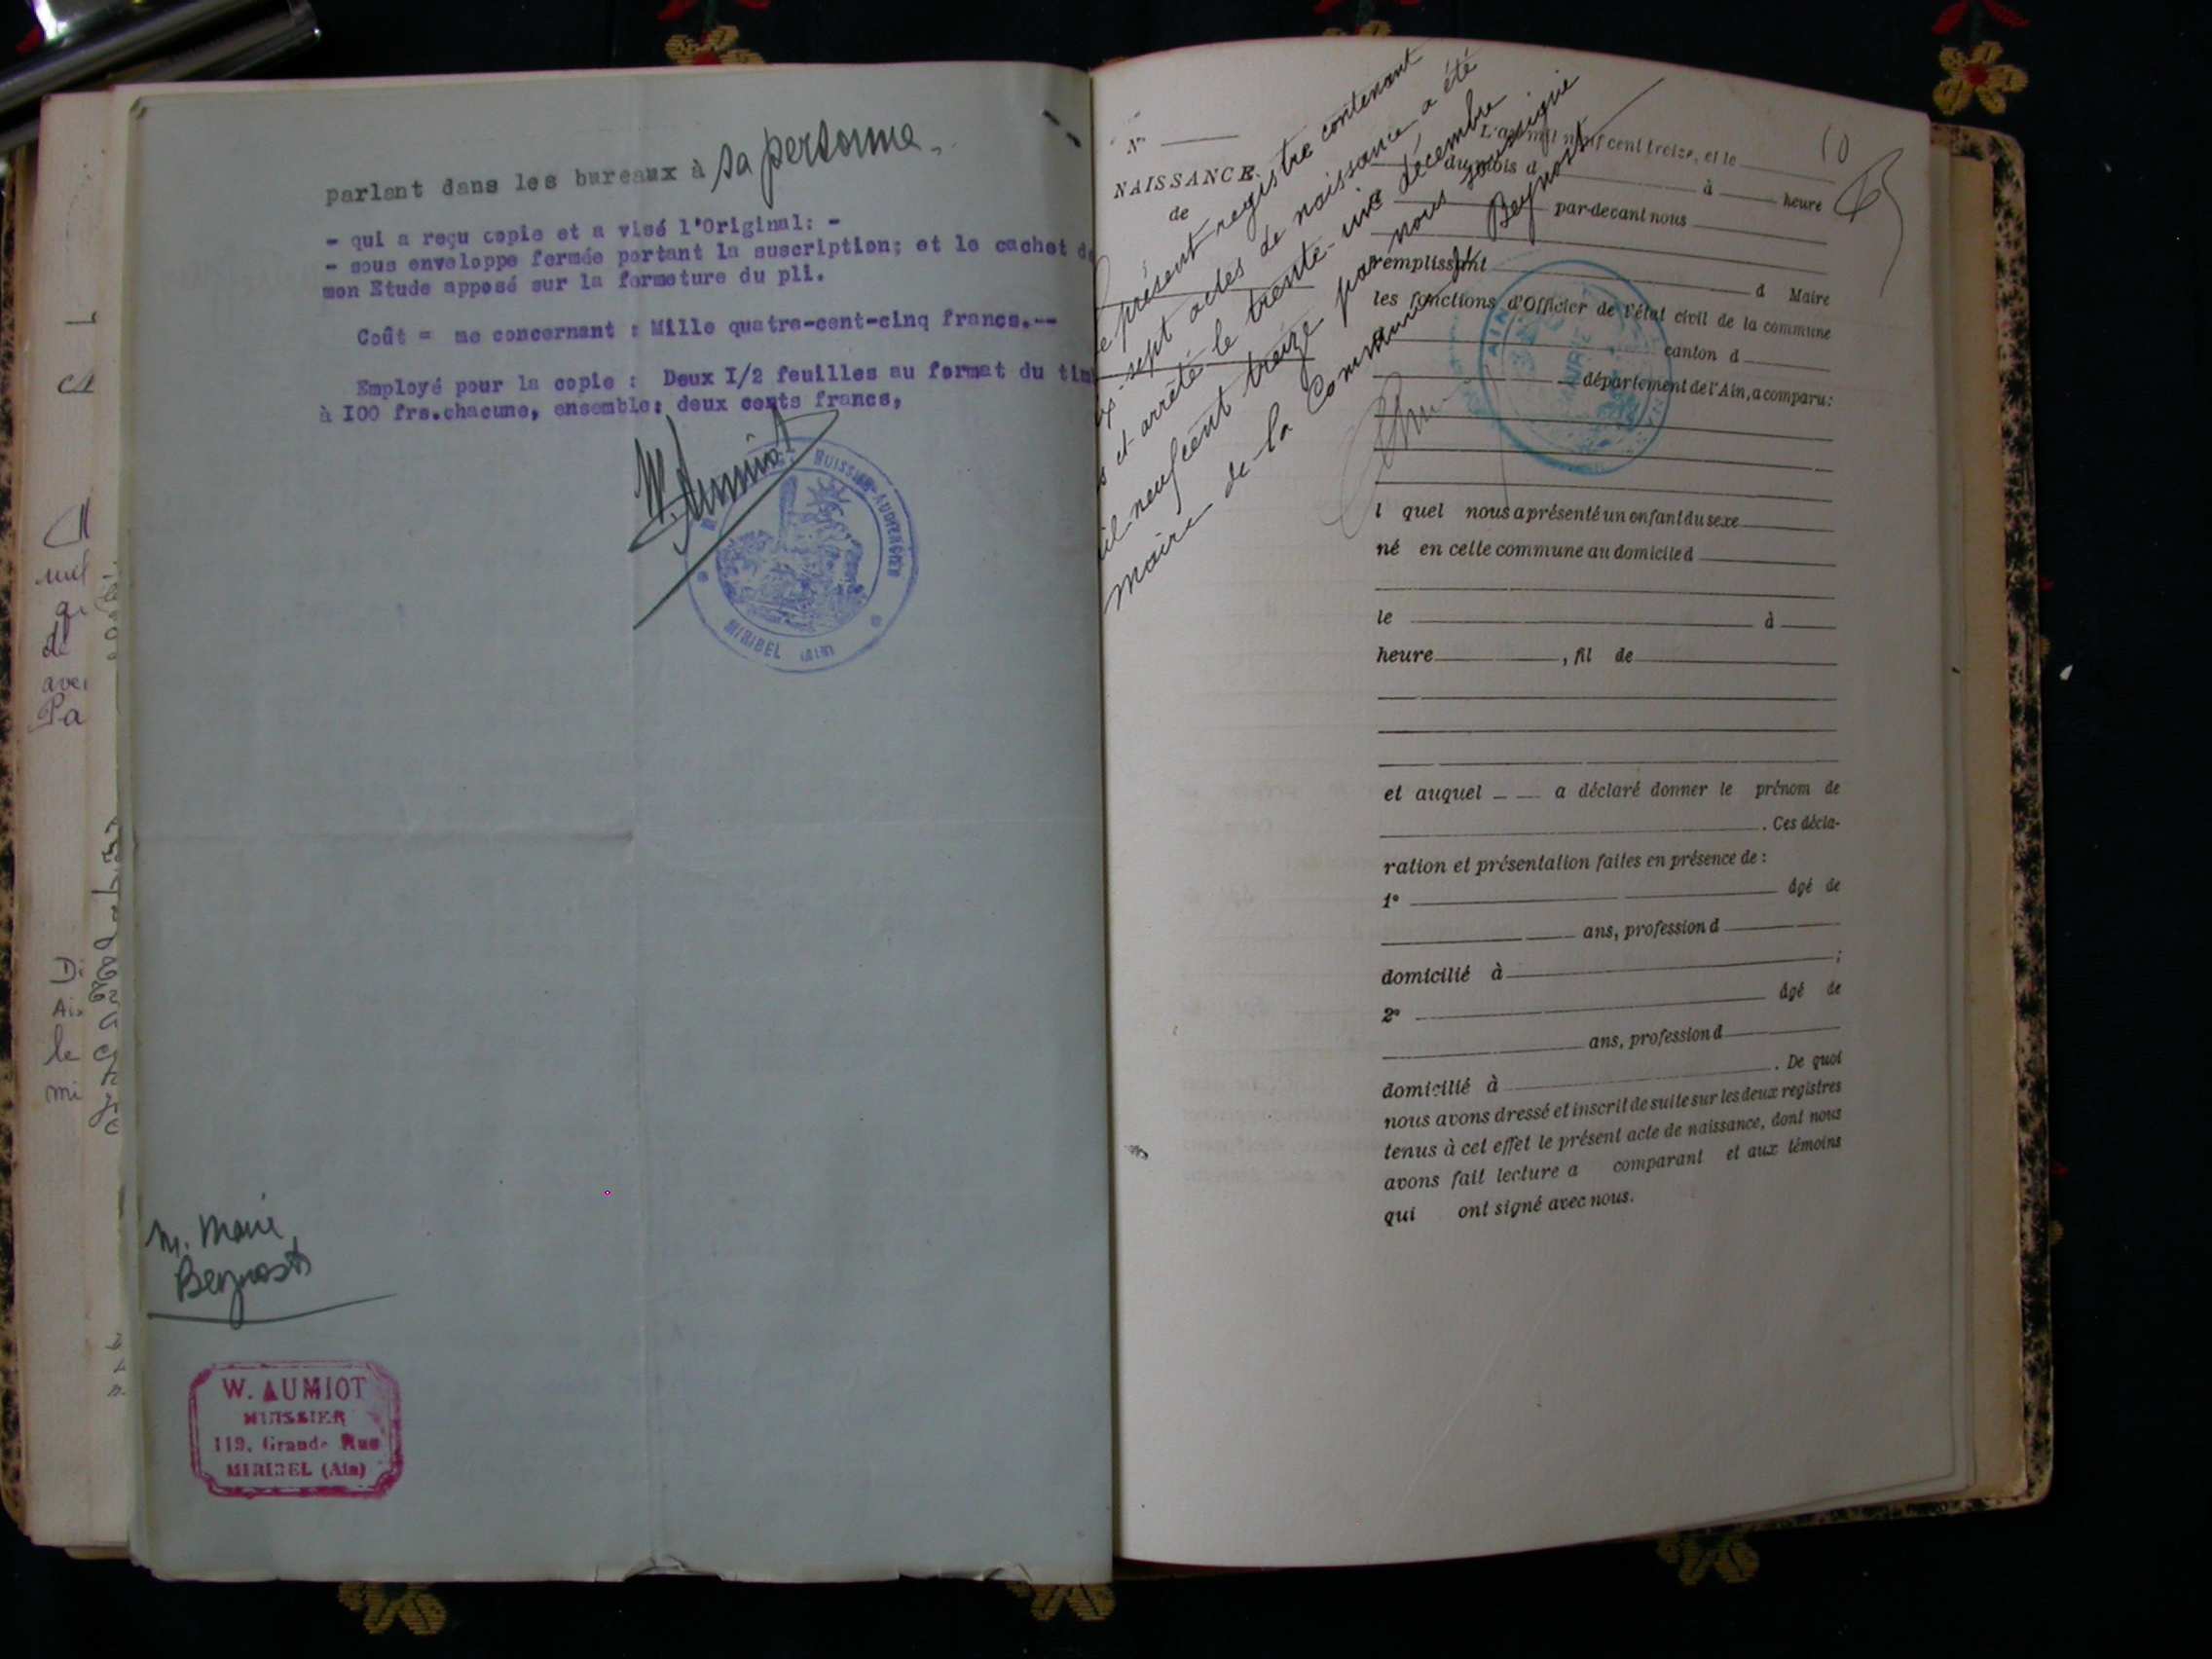 parlant dans les bureaux à sa personne.
- qui a reçu copie et a visé l'Original: -
- sous enveloppe fermée portant la suscription; et le cachet de
mon Etude apposé sur la fermeture du pli.
Coût = me concernant : Mille quatre-cent-cinq francs.--
Employé pour la copie : Deux I/2 feuilles au format du tim
à I00 frs.chacune, ensemble: deux cents francs,
W. Aumiot
HUISSIER-AUDIENCIER
MIRIBEL (AIN)
M. Maire
Beynost
W. AUMIOT
HUISSIER
119, Grande Rue
MIRIBEL (Ain)
mi
le
Pa
de
N°
NAISSANCE
de
présent registre contenant
sept actes de naissance a été
et arrêté le trente-un décembre
mil neuf cent treize par nous soussigné
maire de la Commune de Beynost
10
L'an mil neuf cent treize, et le
du mois d à heure
par-devant nous
remplissant d Maire
les fonctions d'Officier de l'état civil de la commune
canton d
département de l'Ain, a comparu:
l quel nous a présenté un enfant du sexe
né en cette commune au domicile d
le à
heure , fil de
et auquel a déclaré donner le prénom de
. Ces décla-
ration et présentation faites en présence de :
1° âgé de
ans, profession d
domicilié à ;
2° âgé de
ans, profession d
domicilié à . De quoi
nous avons dressé et inscrit de suite sur les deux registres
tenus à cet effet le présent acte de naissance, dont nous
avons fait lecture a comparant et aux témoins
qui ont signé avec nous.